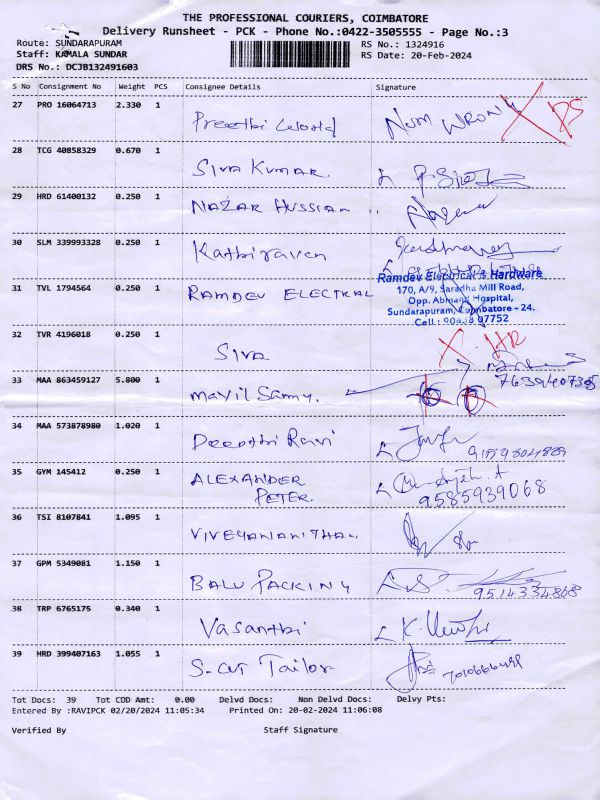 THE PROFESSIONAL COURIERS, COIMBATORE
Delivery Runsheet - PCK - Phone No.:0422-3505555 - Page No.:3
Route: SUNDARAPURAM
RS No.: 1324916
Staff: KAMALA SUNDAR
RS Date: 20-Feb-2024
DRS No.: DCJB132491603
S No Consignment No Weight PCS Consignee Details Signature
27 PRO 16064713 2.330 1 Preethi World NUM WRONG X DS
28 TCG 40858329 0.670 1 SIVA KUMAR
29 HRD 61400132 0.250 1 NAZAR HUSSIAN
30 SLM 339993328 0.250 1 Kathiraven
31 TVL 1794564 0.250 1 RAMDEV ELECTRAL
Ramdev Electrical & Hardware
170, A/9, Saradha Mill Road,
Opp. Abinand Hospital,
Sundarapuram, Coimbatore - 24.
Cell : 07752
32 TVR 4196018 0.250 1 SIVA X
7639407305
33 MAA 863459127 5.800 1 mayil Samy.
34 MAA 573878980 1.020 1 Deepthi Ravi
35 GYM 145412 0.250 1 ALEXANDER
PETER
9585939068
36 TSI 8107841 1.095 1
37 GPM 5349081 1.150 1 BALU PACKING
9514334868
38 TRP 6765175 0.340 1 Vasanthi
39 HRD 399407163 1.055 1 S-cut Tailor
Tot Docs: 39 Tot COD Amt: 0.00 Delvd Docs: Non Delvd Docs: Delvy Pts:
Entered By :RAVIPCK 02/20/2024 11:05:34 Printed On: 20-02-2024 11:06:08
Verified By Staff Signature